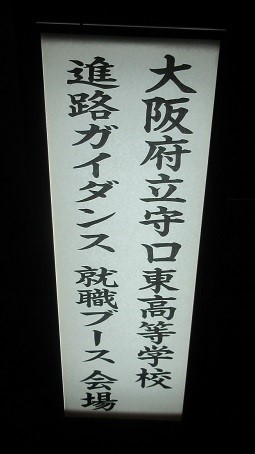 大阪府立守口東高等学校
進路ガイダンス 就職ブース会場